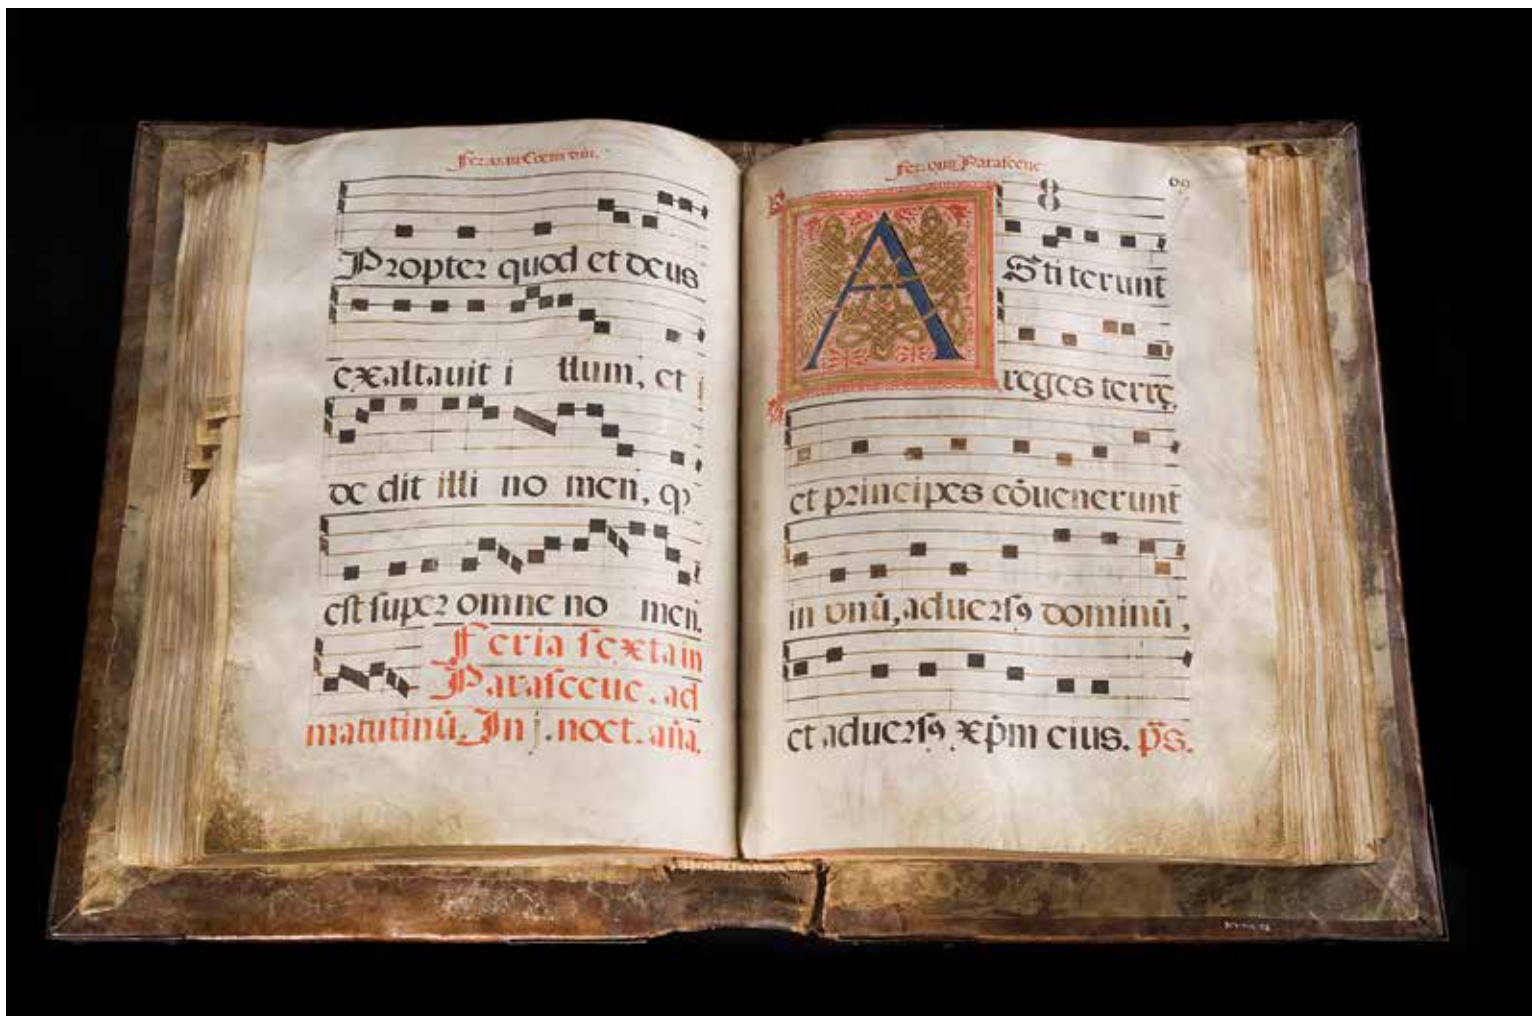 Propter quod et deus
exaltauit i llum, et
de dit illi no men, qꝫ
est super omne no men.
Feria sexta in
Parasceue. ad
matutinū. In j. noct. aña.
Parasceue
8
A Stiterunt
reges terrę,
et principes cōuenerunt
in vnū, aduersꝰ dominū,
et aduersꝰ xp̄m eius. p̄s.